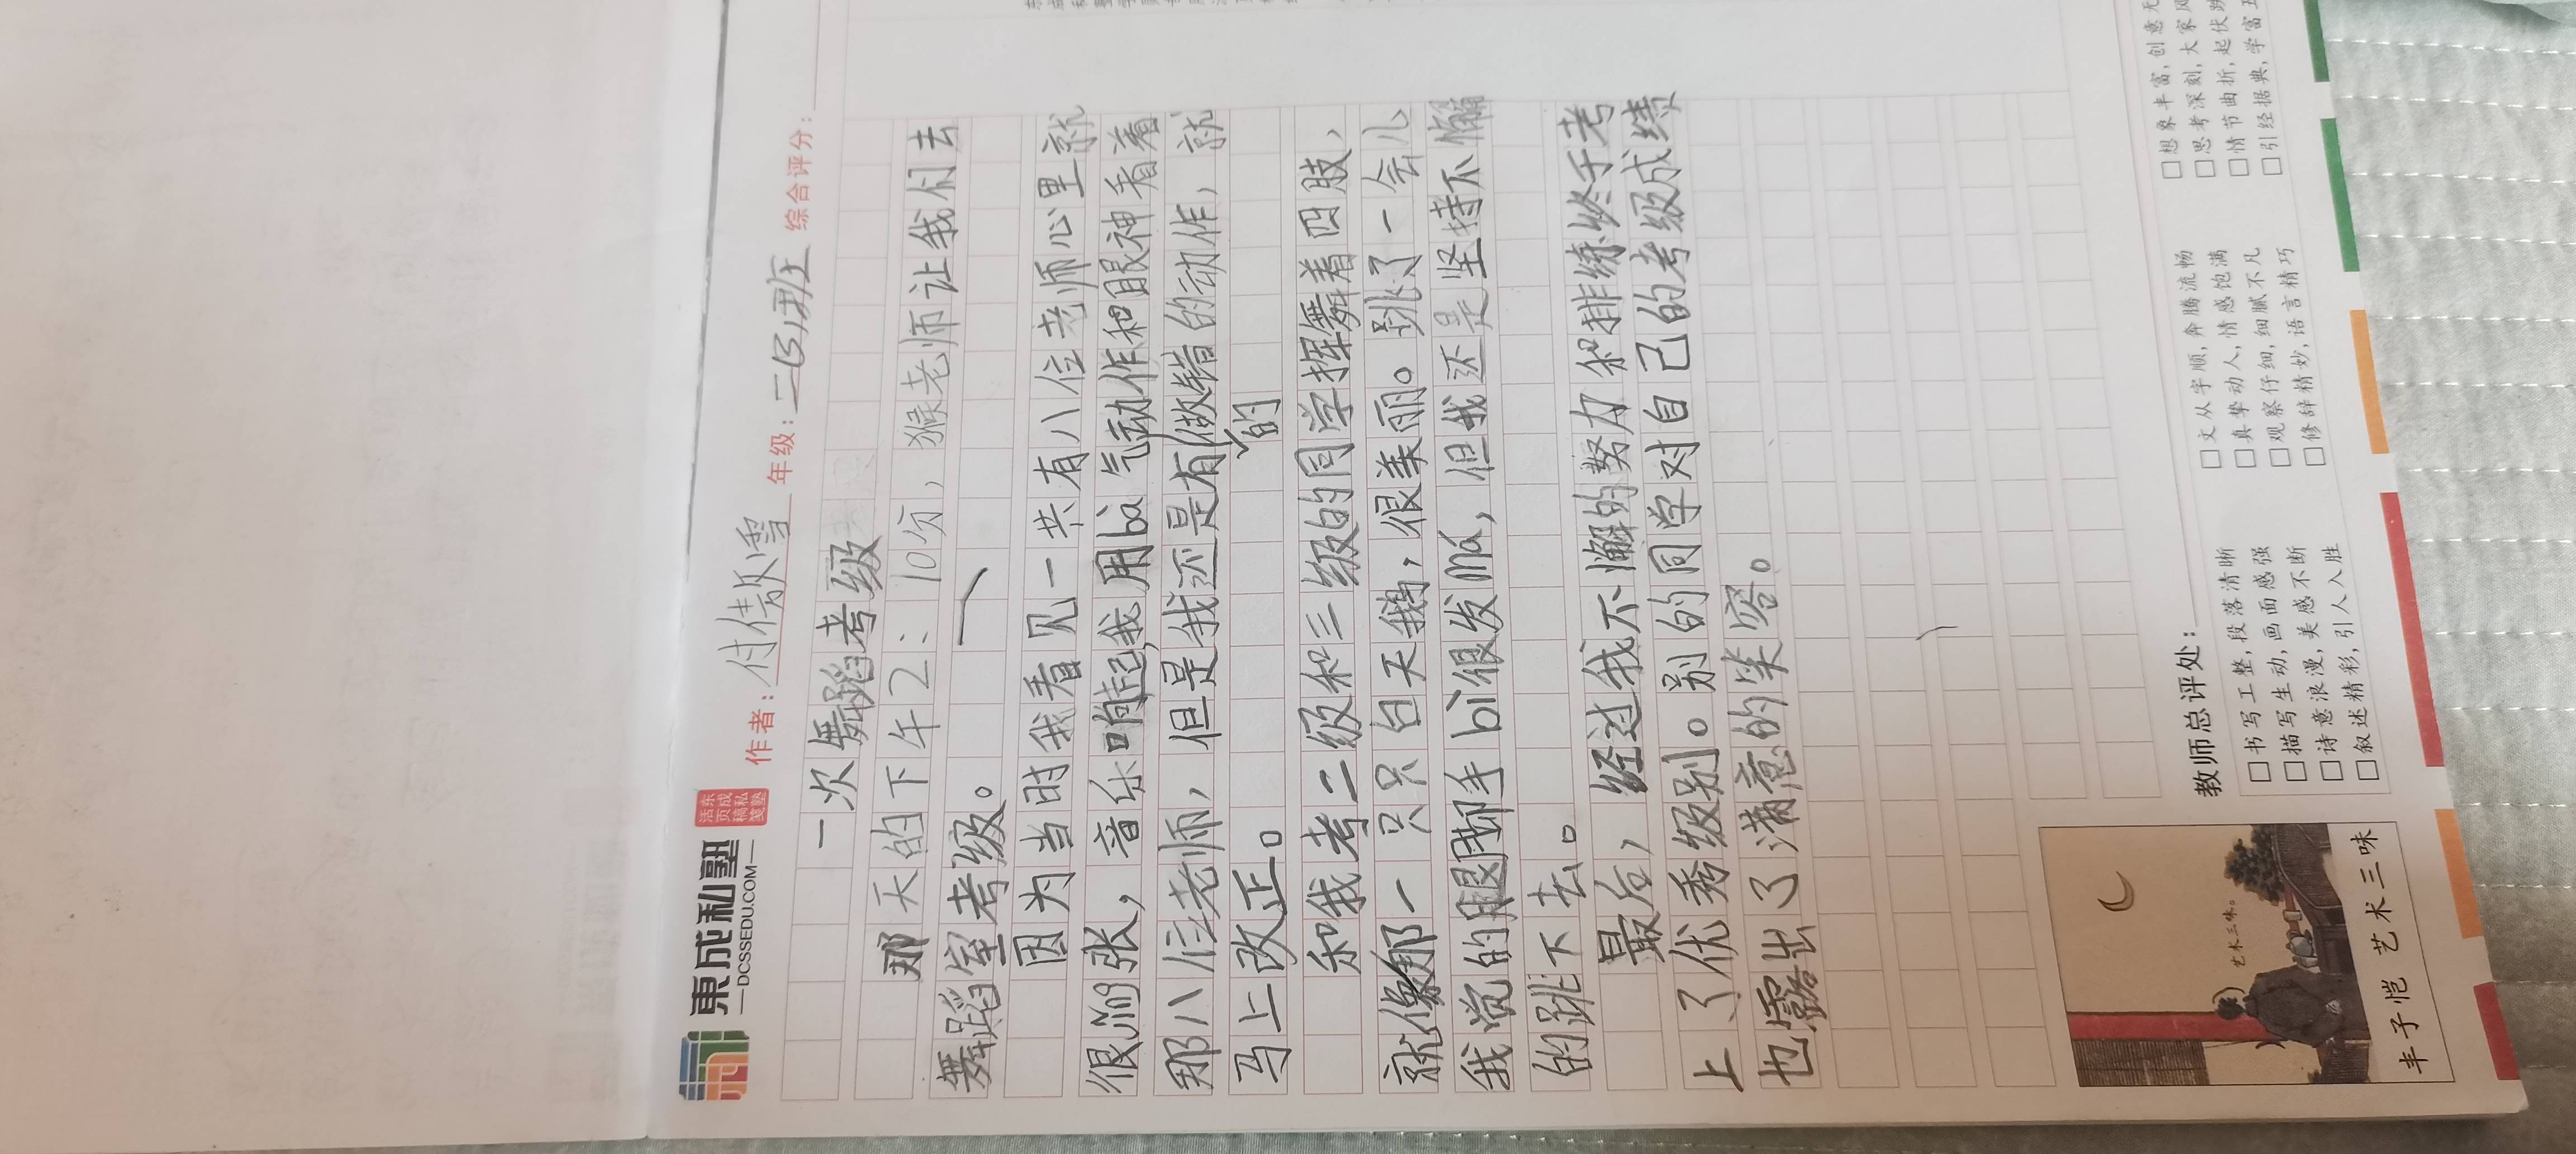 東成私塾
—DCSSEDU.COM—
活页稿笺
东成私塾
作者: 付佳歆雪 年级: 二(5)班 综合评分:
一次舞蹈考级
那天的下午2:10分,猴老师让我们去
舞蹈室考级。
因为当时我看见一共有八位老师心里就
很jing张,音乐响起,我用bà气动作和眼神看着
那八位老师,但是我还是有做错的动作,就
的
马上改正。
和我考二级和三级的同学挥舞着四肢、
就像那一只只白天鹅,很美丽。跳了一会儿
我觉的腿脚手bì很发麻,但我还是坚持不懈
的跳下去。
最后,经过我不懈的努力和排练终于考
上了优秀级别。别的同学对自己的考级成绩
也露出了满意的笑容。
艺术三味。
丰子恺 艺术三味
教师总评处:
□书写工整,段落清晰
□描写生动,画面感强
□诗意浪漫,美感不断
□叙述精彩,引人入胜
□文从字顺,奔腾流畅
□真挚动人,情感饱满
□观察仔细,细腻不凡
□修辞精妙,语言精巧
□想象丰富,创意无
□思考深刻,大家风
□情节曲折,起伏跌
□引经据典,学富五